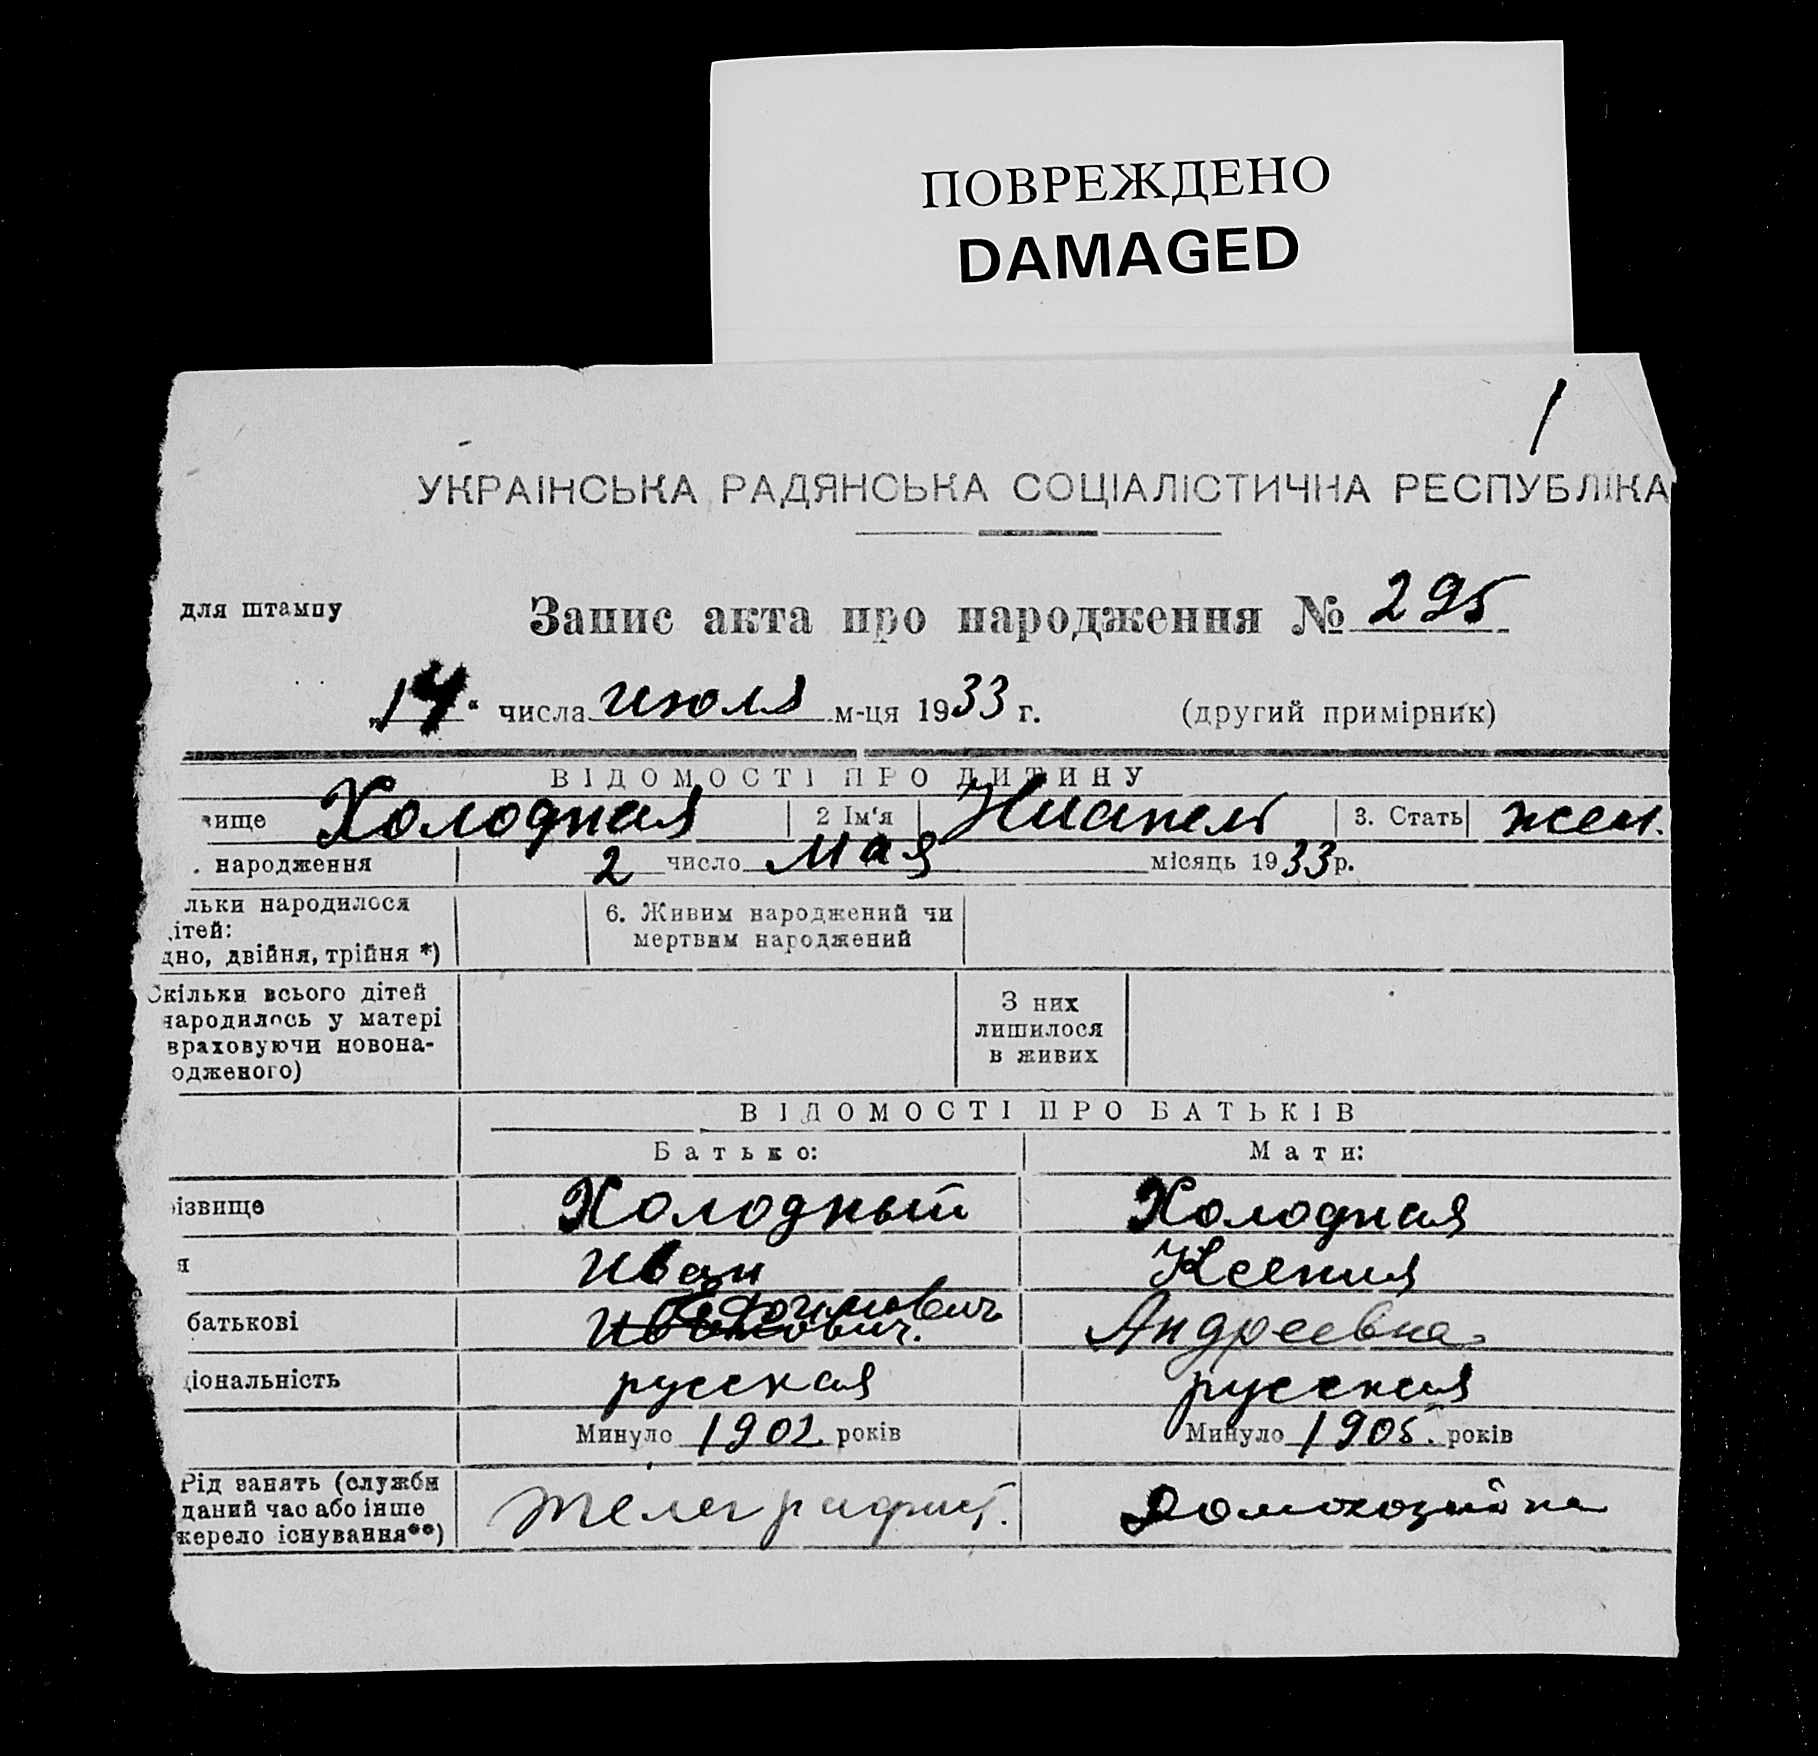 ПОВРЕЖДЕНО
DAMAGED
1
УКРАІНСЬКА РАДЯНСЬКА СОЦІАЛІСТИЧНА РЕСПУБЛІКА
для штампу
Запис акта про народження № 295
„14“ числа июля м-ця 1933 г. (другий примірник)
ВІДОМОСТІ ПРО ДИТИНУ
вище Холодная 2 Ім'я 3. Стать жен.
. народження 2 число мая місяць 1933 р.
льки народилося
ітей:
дно, двійня, трійня *)
6. Живим народжений чи
мертвим народжений
Скільки всього дітей
народилось у матері
враховуючи новона-
одженого)
З них
лишилося
в живих
ВІДОМОСТІ ПРО БАТЬКІВ
Батько: Мати:
різвище Холодный Холодная
я Иван Ксения
батькові Иванович. Андреевна
ціональність русская русская
Минуло 1902 років Минуло 1905. років
Рід занять (служби
даний час або інше
жерело існування**)
Телеграфист. Домохозяйка